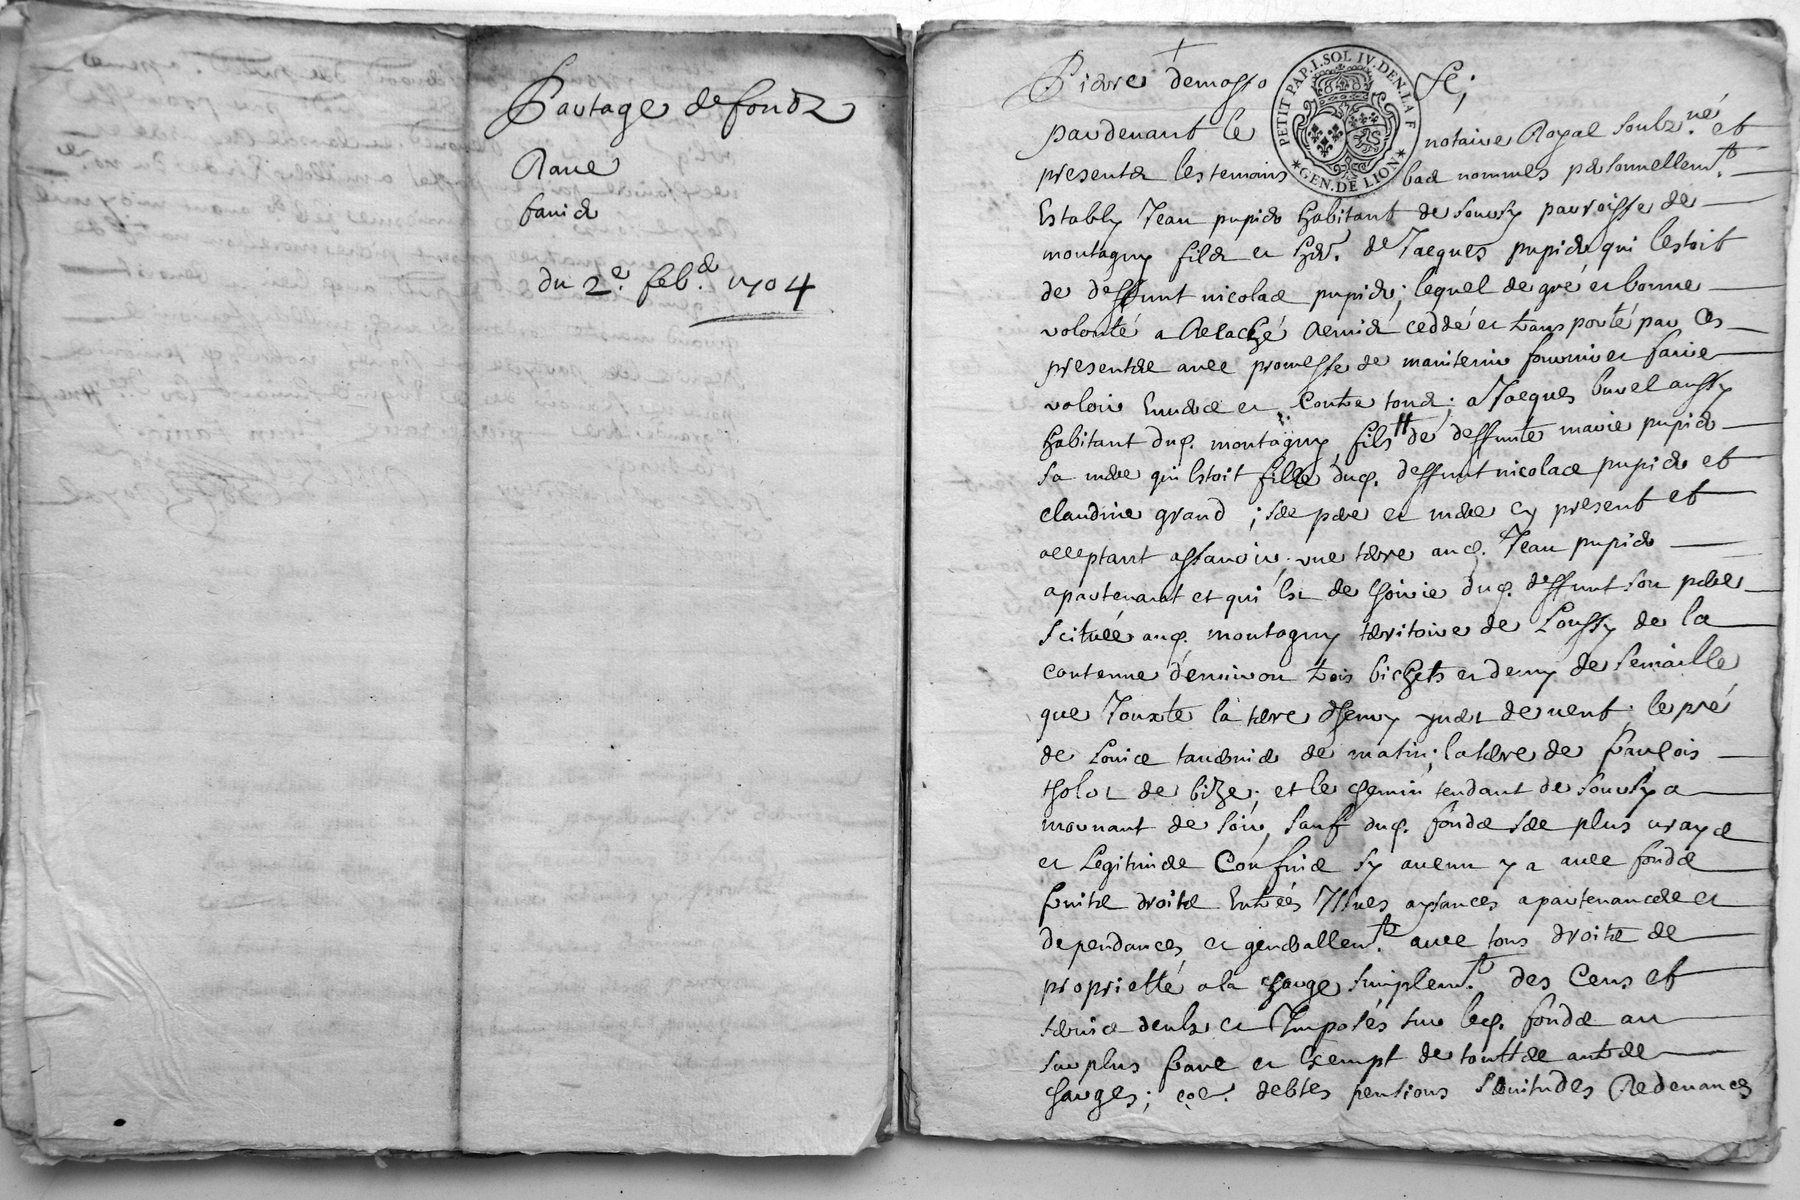 Partage de fondz
Rave
favier
du 2.e feb.r 1704
Pierre demosso
PETIT PAP. I. SOL IV. DEN. LA F
GEN. DE LION
pardevant le notaire Royal soubz.né et
presentz les temoins bas nommés personnellem.t
Estably Jean pupier habitant de souzy parroisse de
montagny filz et her. de Jacques pupier qui lestoit
de deffunt nicolas pupier; lequel de gré et bonne
volonté a Relaché Remis ceddé et transporté par Ces
presentes avec promesse de maintenir fournir et faire
valoir Envers et Contre tous; a Jacques burel aussy
habitant dud. montagny, fils de deffunte marie pupier
sa mere qui Estoit fille dud. deffunt nicolas pupier et
claudine grand; ses pere et mere cy present et
acceptant assavoir une terre aud. Jean pupier
apartenant et qui Est de hoirie dud. deffunt son pere
scituée aud. montagny territoire de Loussy de la
contenue d'environ trois bichets et demy de semaille
que Jouxte la terre d'hemy de vent; le pré
de Louise de matin; la terre de françois
tholot de bize; et le chemin tendant de souzy a
mornant de soir, sauf dud. fondz ses plus vrayes
et Legitimes Confins sy aucun y a avec fondz
fruitz droitz Entrées Issues aysances apartenances et
dependances, et generallem.t avec tous droitz de
proprietté a la charge simplem.t des Cens et
servis deubz et Imposés sur led. fondz au
surplus franc et Exempt de touttes autres
charges; debtes pensions servitudes Redevances